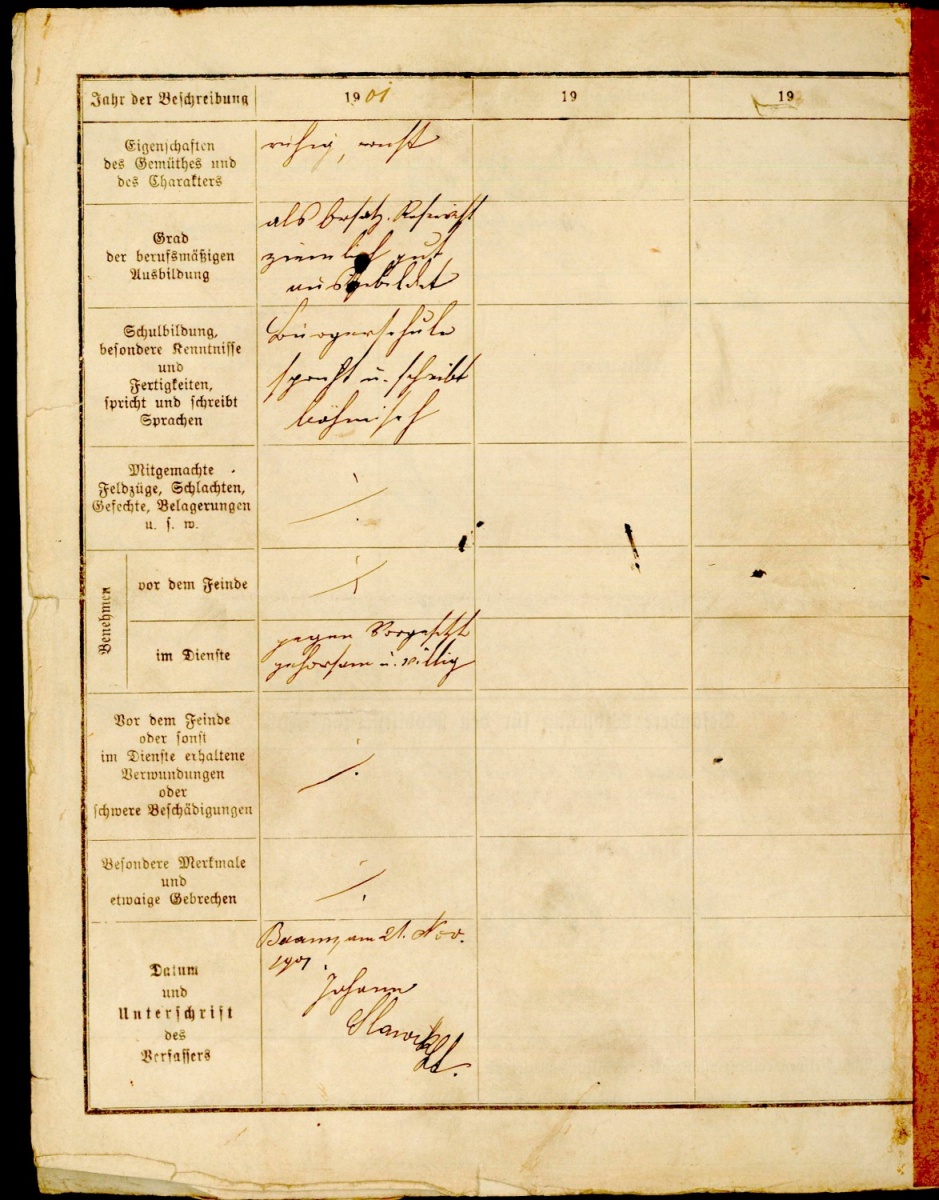 Jahr der Beschreibung
1901
19
19
Eigenschaften
des Gemüthes und
des Charakters
ruhig, ernst
Grad
der berufsmäßigen
Ausbildung
als Ersatz-Reservist
ziemlich gut
ausgebildet
Schulbildung,
besondere Kenntnisse
und
Fertigkeiten,
spricht und schreibt
Sprachen
Bürgerschule
spricht u. schreibt
böhmisch
Mitgemachte
Feldzüge, Schlachten,
Gefechte, Belagerungen
u. s. w.
Benehmen
vor dem Feinde
im Dienste
gegen Vorgesetzte
gehorsam u. willig
Vor dem Feinde
oder sonst
im Dienste erhaltene
Verwundungen
oder
schwere Beschädigungen
Besondere Merkmale
und
etwaige Gebrechen
Datum
und
Unterschrift
des
Verfassers
am 21. Nov.
1901
Johann
Slawik
Lt.